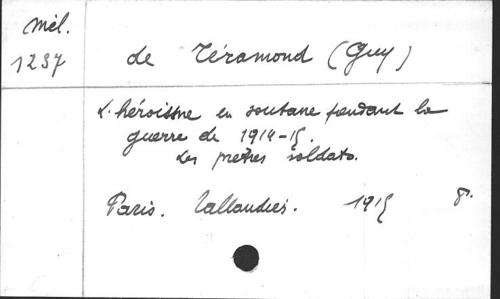 Mél.
1237
de Téramond (Guy)
L'héroïsme en soutane pendant la
guerre de 1914-15.
Les prêtres soldats.
Paris. Tallandier. 1915 8°.